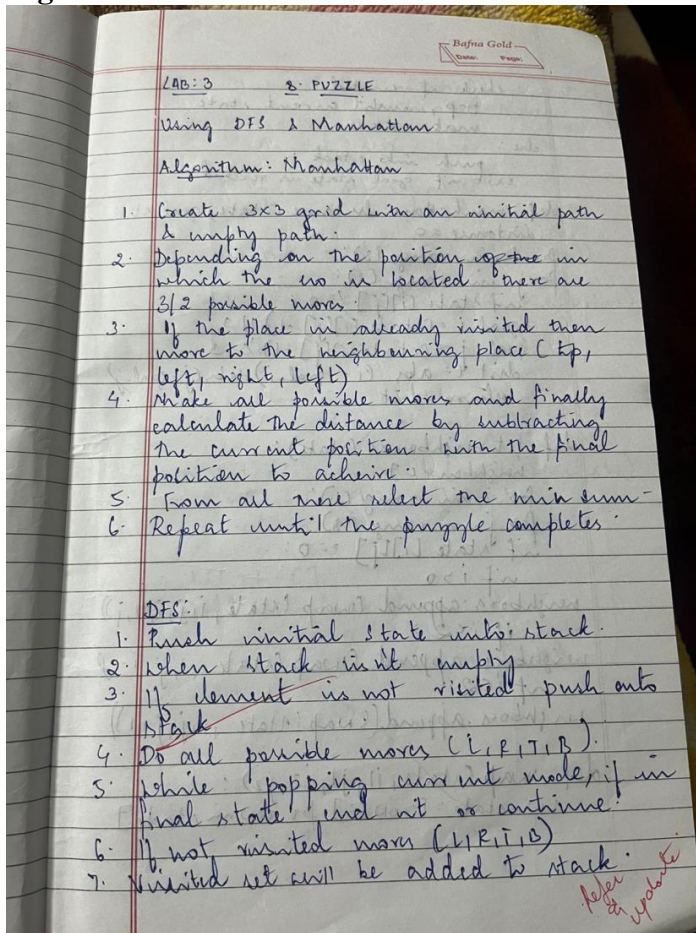 Bafna Gold
Date: Page:
LAB: 3 8- PUZZLE
Using DFS & Manhattan
Algorithm: Manhattan
1. Create 3x3 grid with an initial path
& empty path.
2. Depending on the position of the in
which the no is located there are
3/2 possible moves.
3. If the place is already visited then
move to the neighbouring place (top,
left, right, left)
4. Make all possible moves and finally
calculate the distance by subtracting
the current position with the final
position to acheive.
5. From all select the min sum-
6. Repeat until the puzzle completes.
DFS:
1. Push initial state into stack.
2. when stack isn't empty
3. If element is not visited push onto
stack
4. Do all possible moves (L,R,T,B).
5. while popping current node, if in
final state end it or continue.
6. If not visited moves (L,R,T,B)
7. Visited set will be added to stack.
Refer
& update